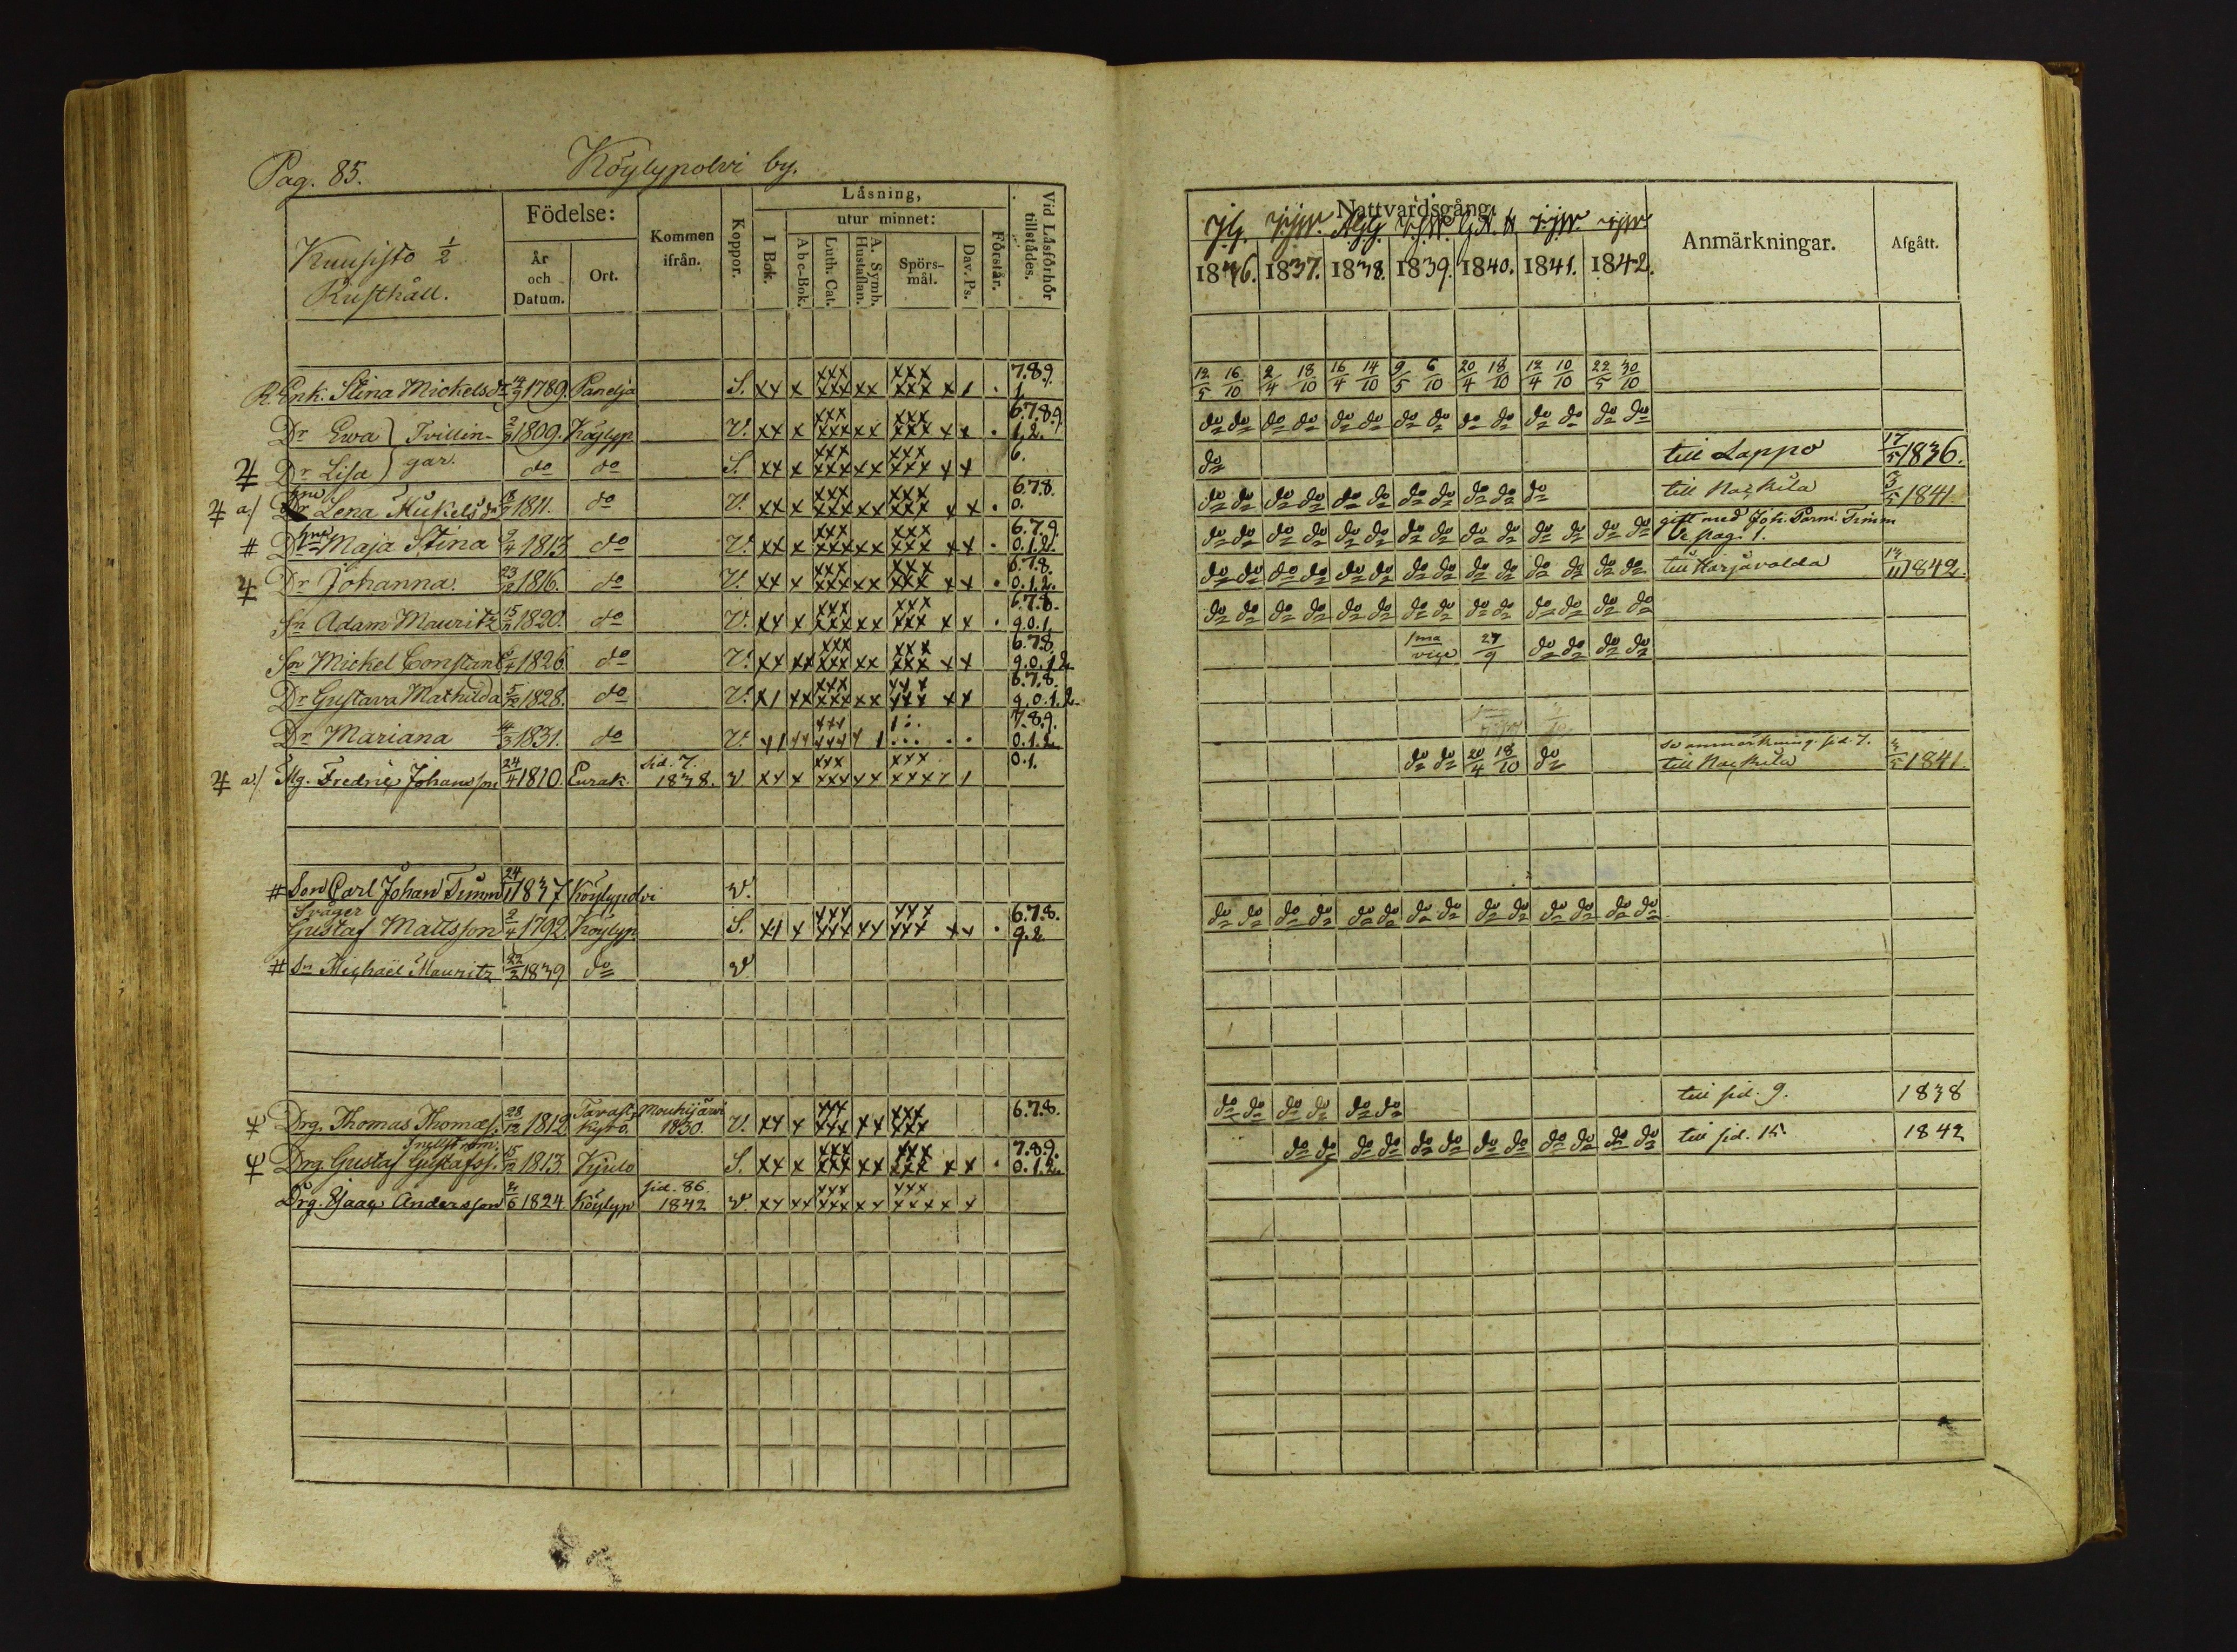 Pag. 85. Köylypolvi by.
Kuusisto 1/2 Rusthåll.
Födelse: År och Datum. Ort. Kommen ifrån. Koppor. Läsning, I Bok. utur minnet: A b c-Bok. Luth. Cat. A. Symb. Hustaflan. Spörsmål. Dav. Ps. Förstår. Vid Läsförhör tillstädes.
Nattvardsgång. Anmärkningar. Afgått.
1836. 1837. 1838. 1839. 1840. 1841. 1842.
R. Enk. Stina Mickelsdr 1789. Panelja S. xx x xxx xxx xx xxx xxx x 1 . 7.8.9. 1. 12/5 16/10 2/4 18/10 16/4 14/10 9/5 6/10 20/4 18/10 12/4 10/10 22/5 30/10
Dr Ewa } Tvillin- 1809. Köylyp V. xx x xxx xxx xx xxx xxx x x . 6.7.8.9. 1.2. do do do do do do do do do do do do do do
Dr Lisa } gar. do do S. xx x xxx xxx xx xxx xxx x x 6. do till Lappo 17/5 1836.
a/ Lena Mickelsdr 1811. do V. xx x xxx xxx xx xxx xxx x x . 6.7.8. 0. do do do do do do do do do do do till Naxkila 3/5 1841.
# Maja Stina 9/4 1813 do V. xx x xxx xxx xx xxx xxx x x . 6.7.9. 0.1.2. do do do do do do do do do do do do do do gift med Joh. Timm
Ve pag. 1.
Dr Johanna. 23/2 1816. do V. xx x xxx xxx xx xxx xxx x x . 6.7.8. 0.1.2. do do do do do do do do do do do do do do till Harjavalda 1842.
Sn Adam Mauritz 1820. do V. xx x xxx xxx xx xxx xxx x x . 6.7.8. 9.0.1. do do do do do do do do do do do do do do
Sn Michel Constant 1826. do V. xx xx xxx xxx xx xxx xxx x x 6.7.8. 9.0.1.2. 1ma vice 27/9 do do do do
Dr Gustava Mathilda 5/12 1828. do V. x1 xx xxx xxx xx xxx xxx x x 6.7.8. 9.0.1.2.
Dr Mariana 1831. do V. 7.8.9. 0.1.2.
a/ Mg. Fredric Johansson 24/4 1810. Eurak sid. 7. 1838. V xx x xxx xxx xx xxx xxxx 1 0.1. do do 20/4 18/10 do se anmärkning sid. 7.
till Naxkila 1841.
# Son Carl Johan Timm 24/11 1837 Köylypolvi V.
Svåger
Gustaf Mattsson 2/4 1792. Köylyp. S. x1 x xxx xxx xx xxx xxx x x . 6.7.8. 9.2 do do do do do do do do do do do do do do
# Sn Michaël Mauritz 22/2 1839 do V
Drg. Thomas Thomæs. 28/12 1812. Tavast Kyro. Mouhijärvi 1830. V. xx x xxx xxx xx xxx xxx 6.7.8. do do do do do do till sid. 9. 1838
Drg. Gustaf Gustafss. 1813 Kjulo S. xx x xxx xxx xx xxx xxx x x . 7.8.9. 0.1.2. do do do do do do do do do do do do till sid. 15. 1842
Drg. Isaac Andersson 1824. Köylyp sid. 86. 1842 V. xx xx xxx xxx xx xxx xxxx x